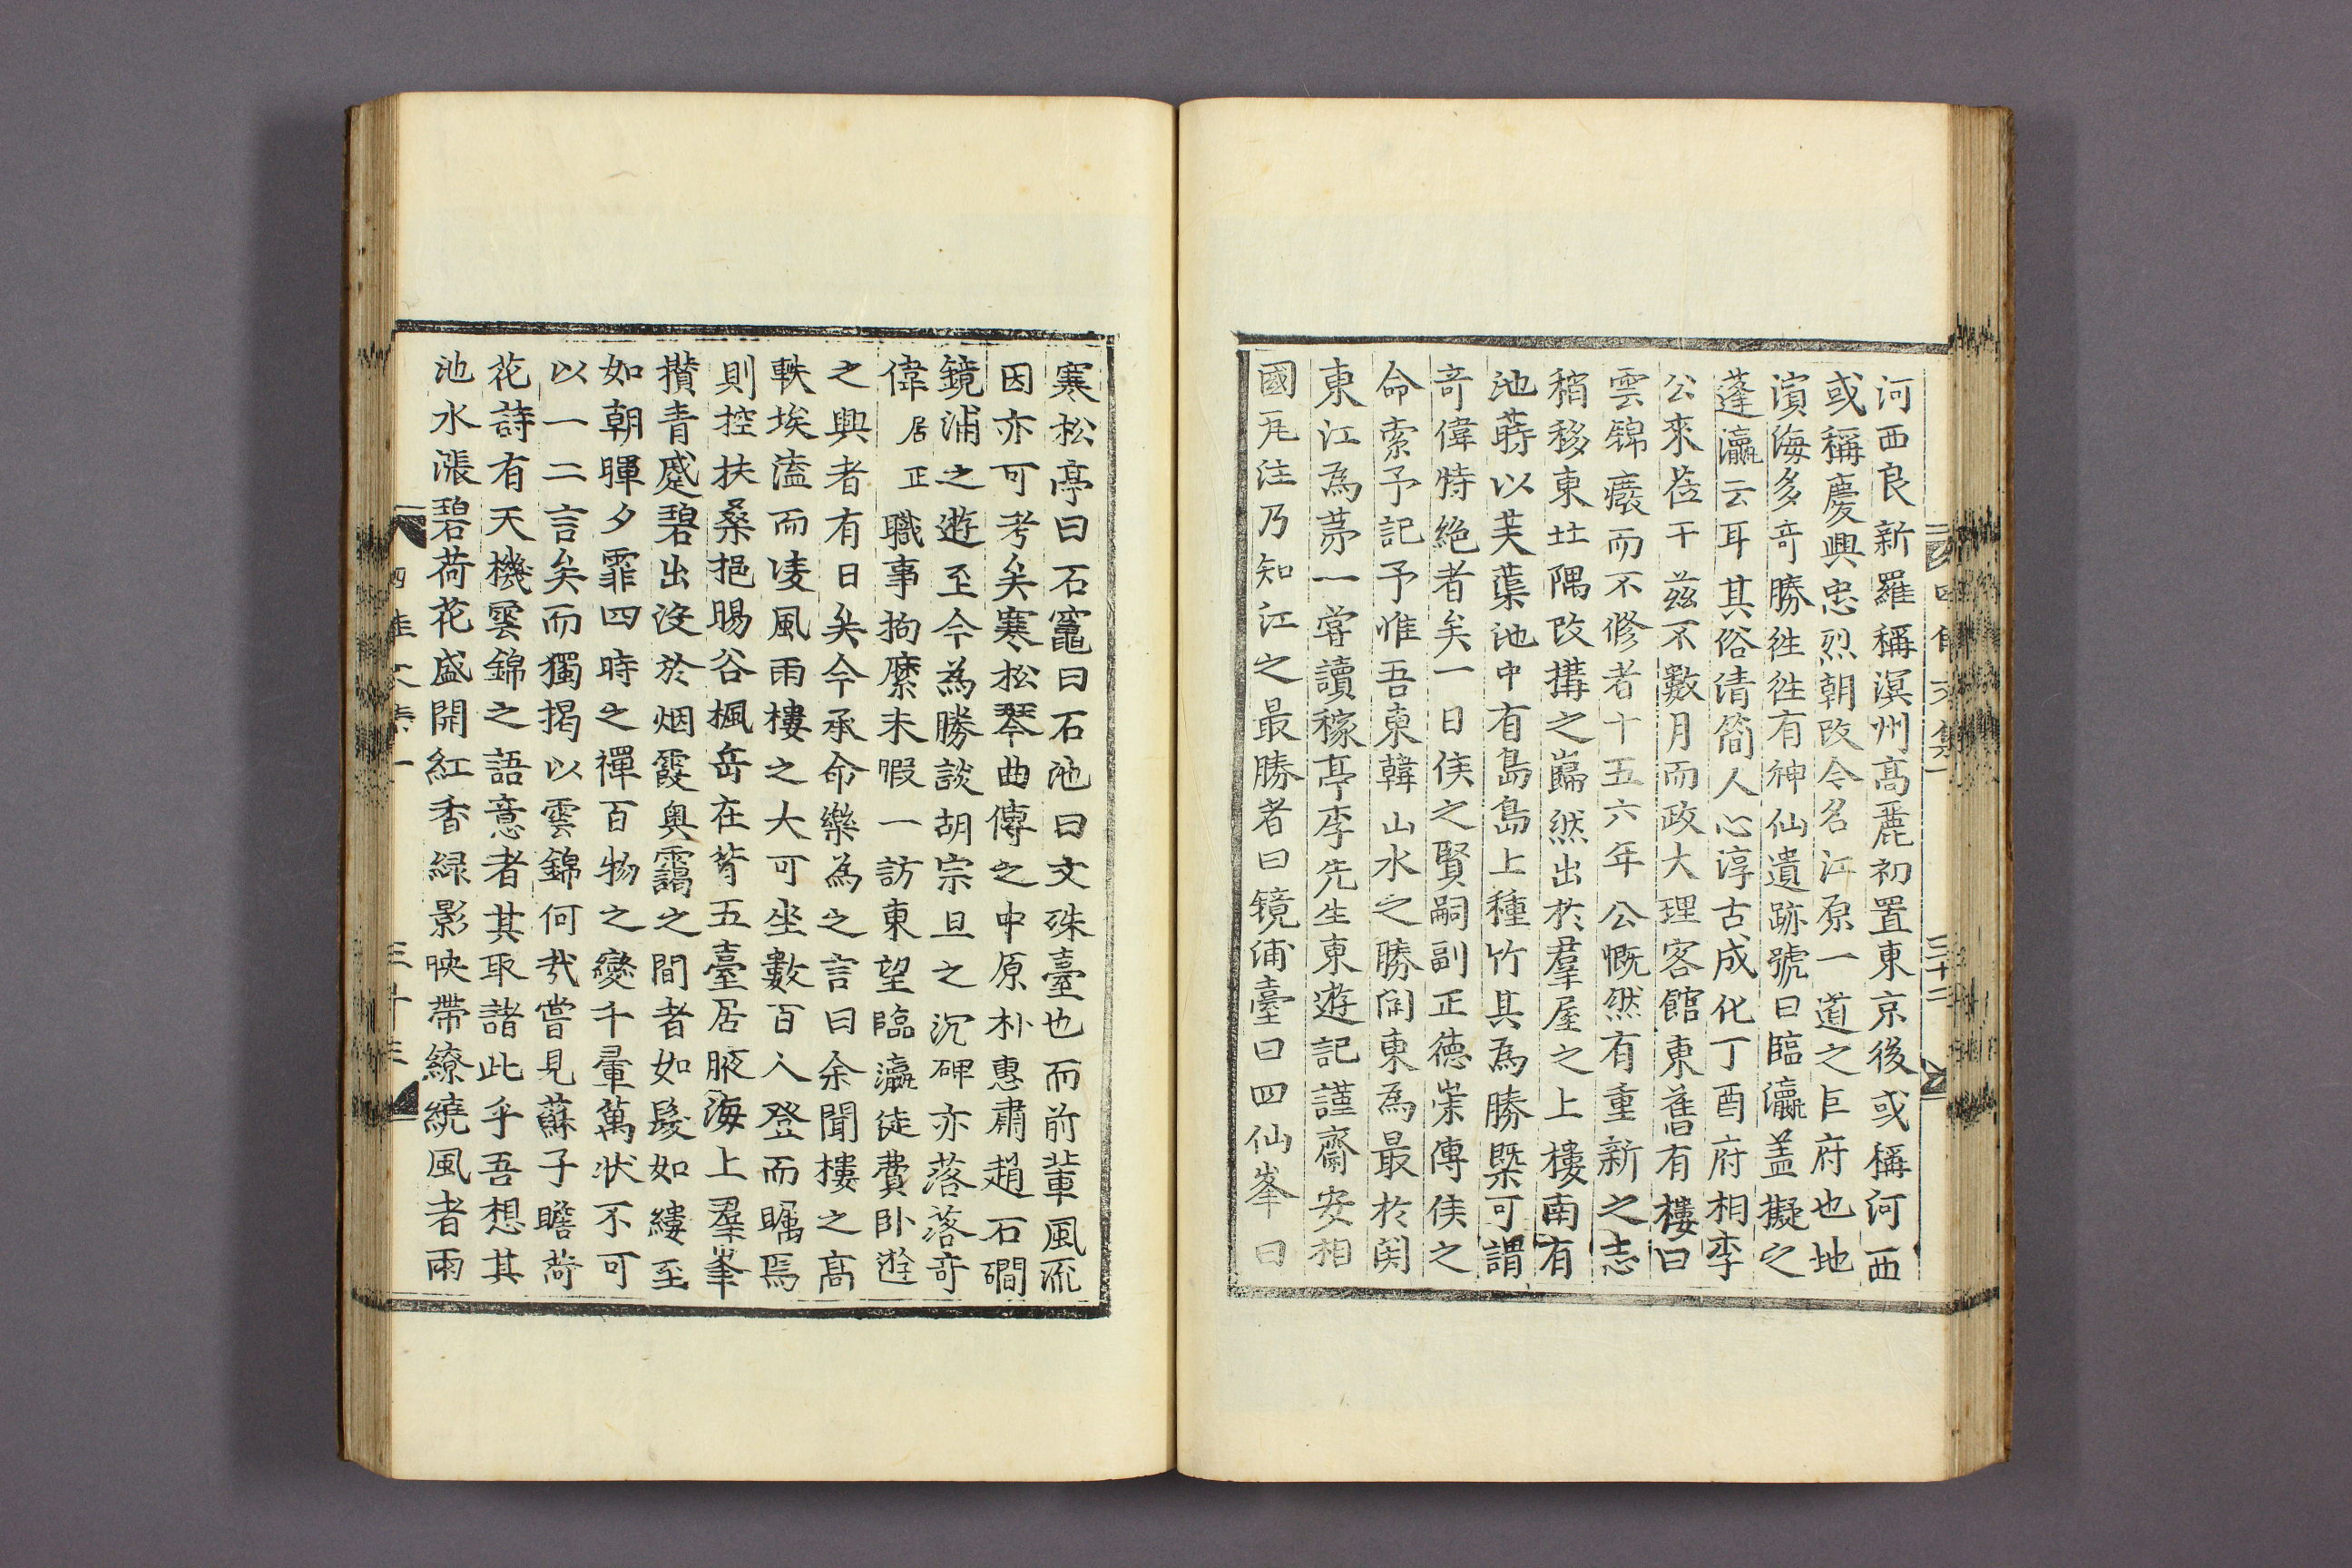 河西良新羅稱溟州高麗初置東京後或稱河西
或稱慶興忠烈朝改今名江原一道之巨府也地
濱海多奇勝徃徃有神仙遺跡號曰臨瀛盖擬之
蓬瀛云耳其俗清簡人心淳古成化丁酉府相李
公來莅干玆不數月而政大理客館東舊有樓曰
雲錦癈而不修者十五六年公慨然有重新之志
稍移東北隅改搆之巋然出於羣屋之上樓南有
池蒔以芙蕖池中有島島上種竹其為勝槩可謂
奇偉特絶者矣一日侯之賢嗣副正德崇傳侯之
命索予記予惟吾東韓山水之勝関東為最於関
東江為茅一嘗讀稼亭李先生東遊記謹齋安相
國瓦注乃知江之最勝者曰鏡浦臺曰四仙峯曰
四佳文集一
三十二
寒松亭曰石竈曰石池曰文殊臺也而前軰風流
因亦可考矣寒松琴曲傳之中原朴惠肅趙石磵
鏡浦之遊至今為勝談胡宗旦之沉碑亦落落奇
偉居正職事拘縻未暇一訪東望臨瀛徒費卧遊
之興者有日矣今承命樂為之言曰余聞樓之高
軼埃𡏖而凌風雨樓之大可坐數百人登而矚焉
則控扶桑挹賜谷楓岳在背五臺居腋海上羣峯
攅青蹙碧出沒於烟霞奥靄之間者如髮如縷至
如朝暉夕霏四時之禪百物之變千暈萬状不可
以一二言矣而獨揭以雲錦何㢤嘗見蘇子瞻荷
花詩有天機雲錦之語意者其取諸此乎吾想其
池水漲碧荷花盛開紅香緑影映帶繚繞風者雨
四佳文集一
三十三